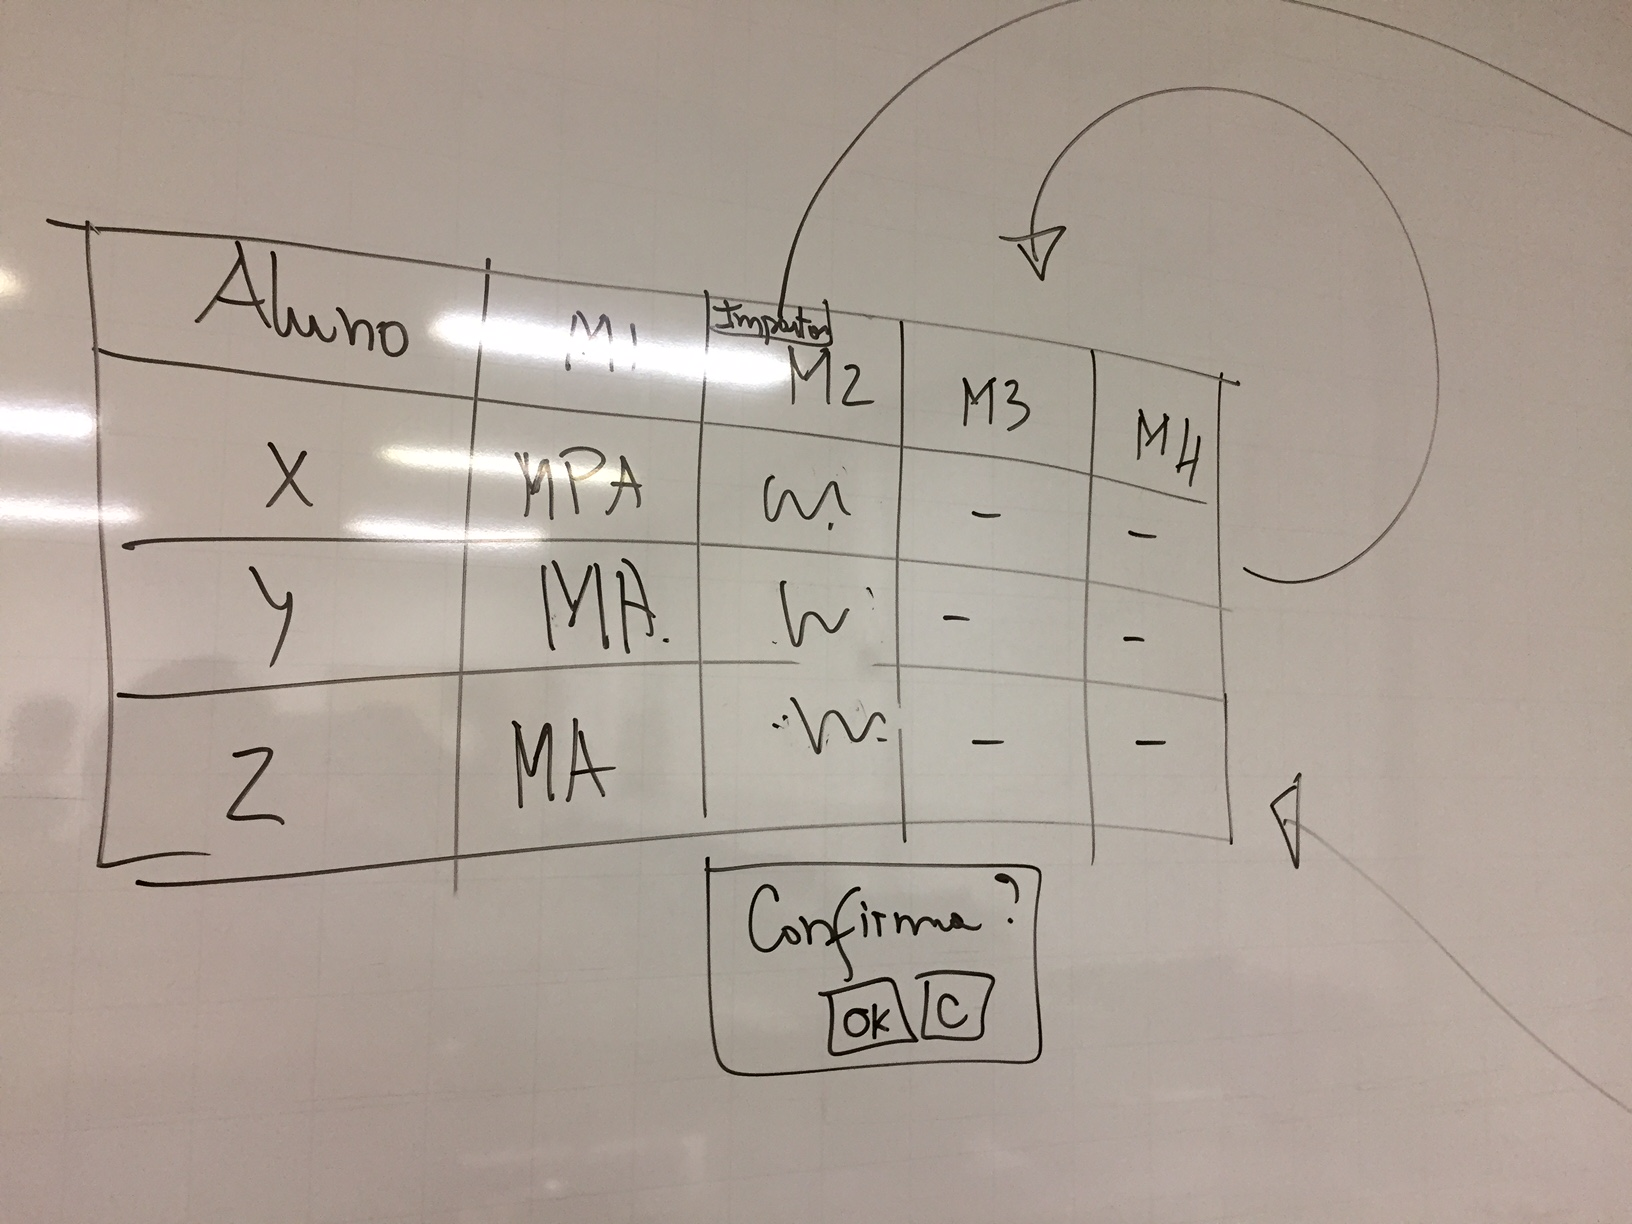 Aluno M1 Importar M2 M3 M4
X MPA - -
Y MA. - -
Z MA - -
Confirma?
OK C